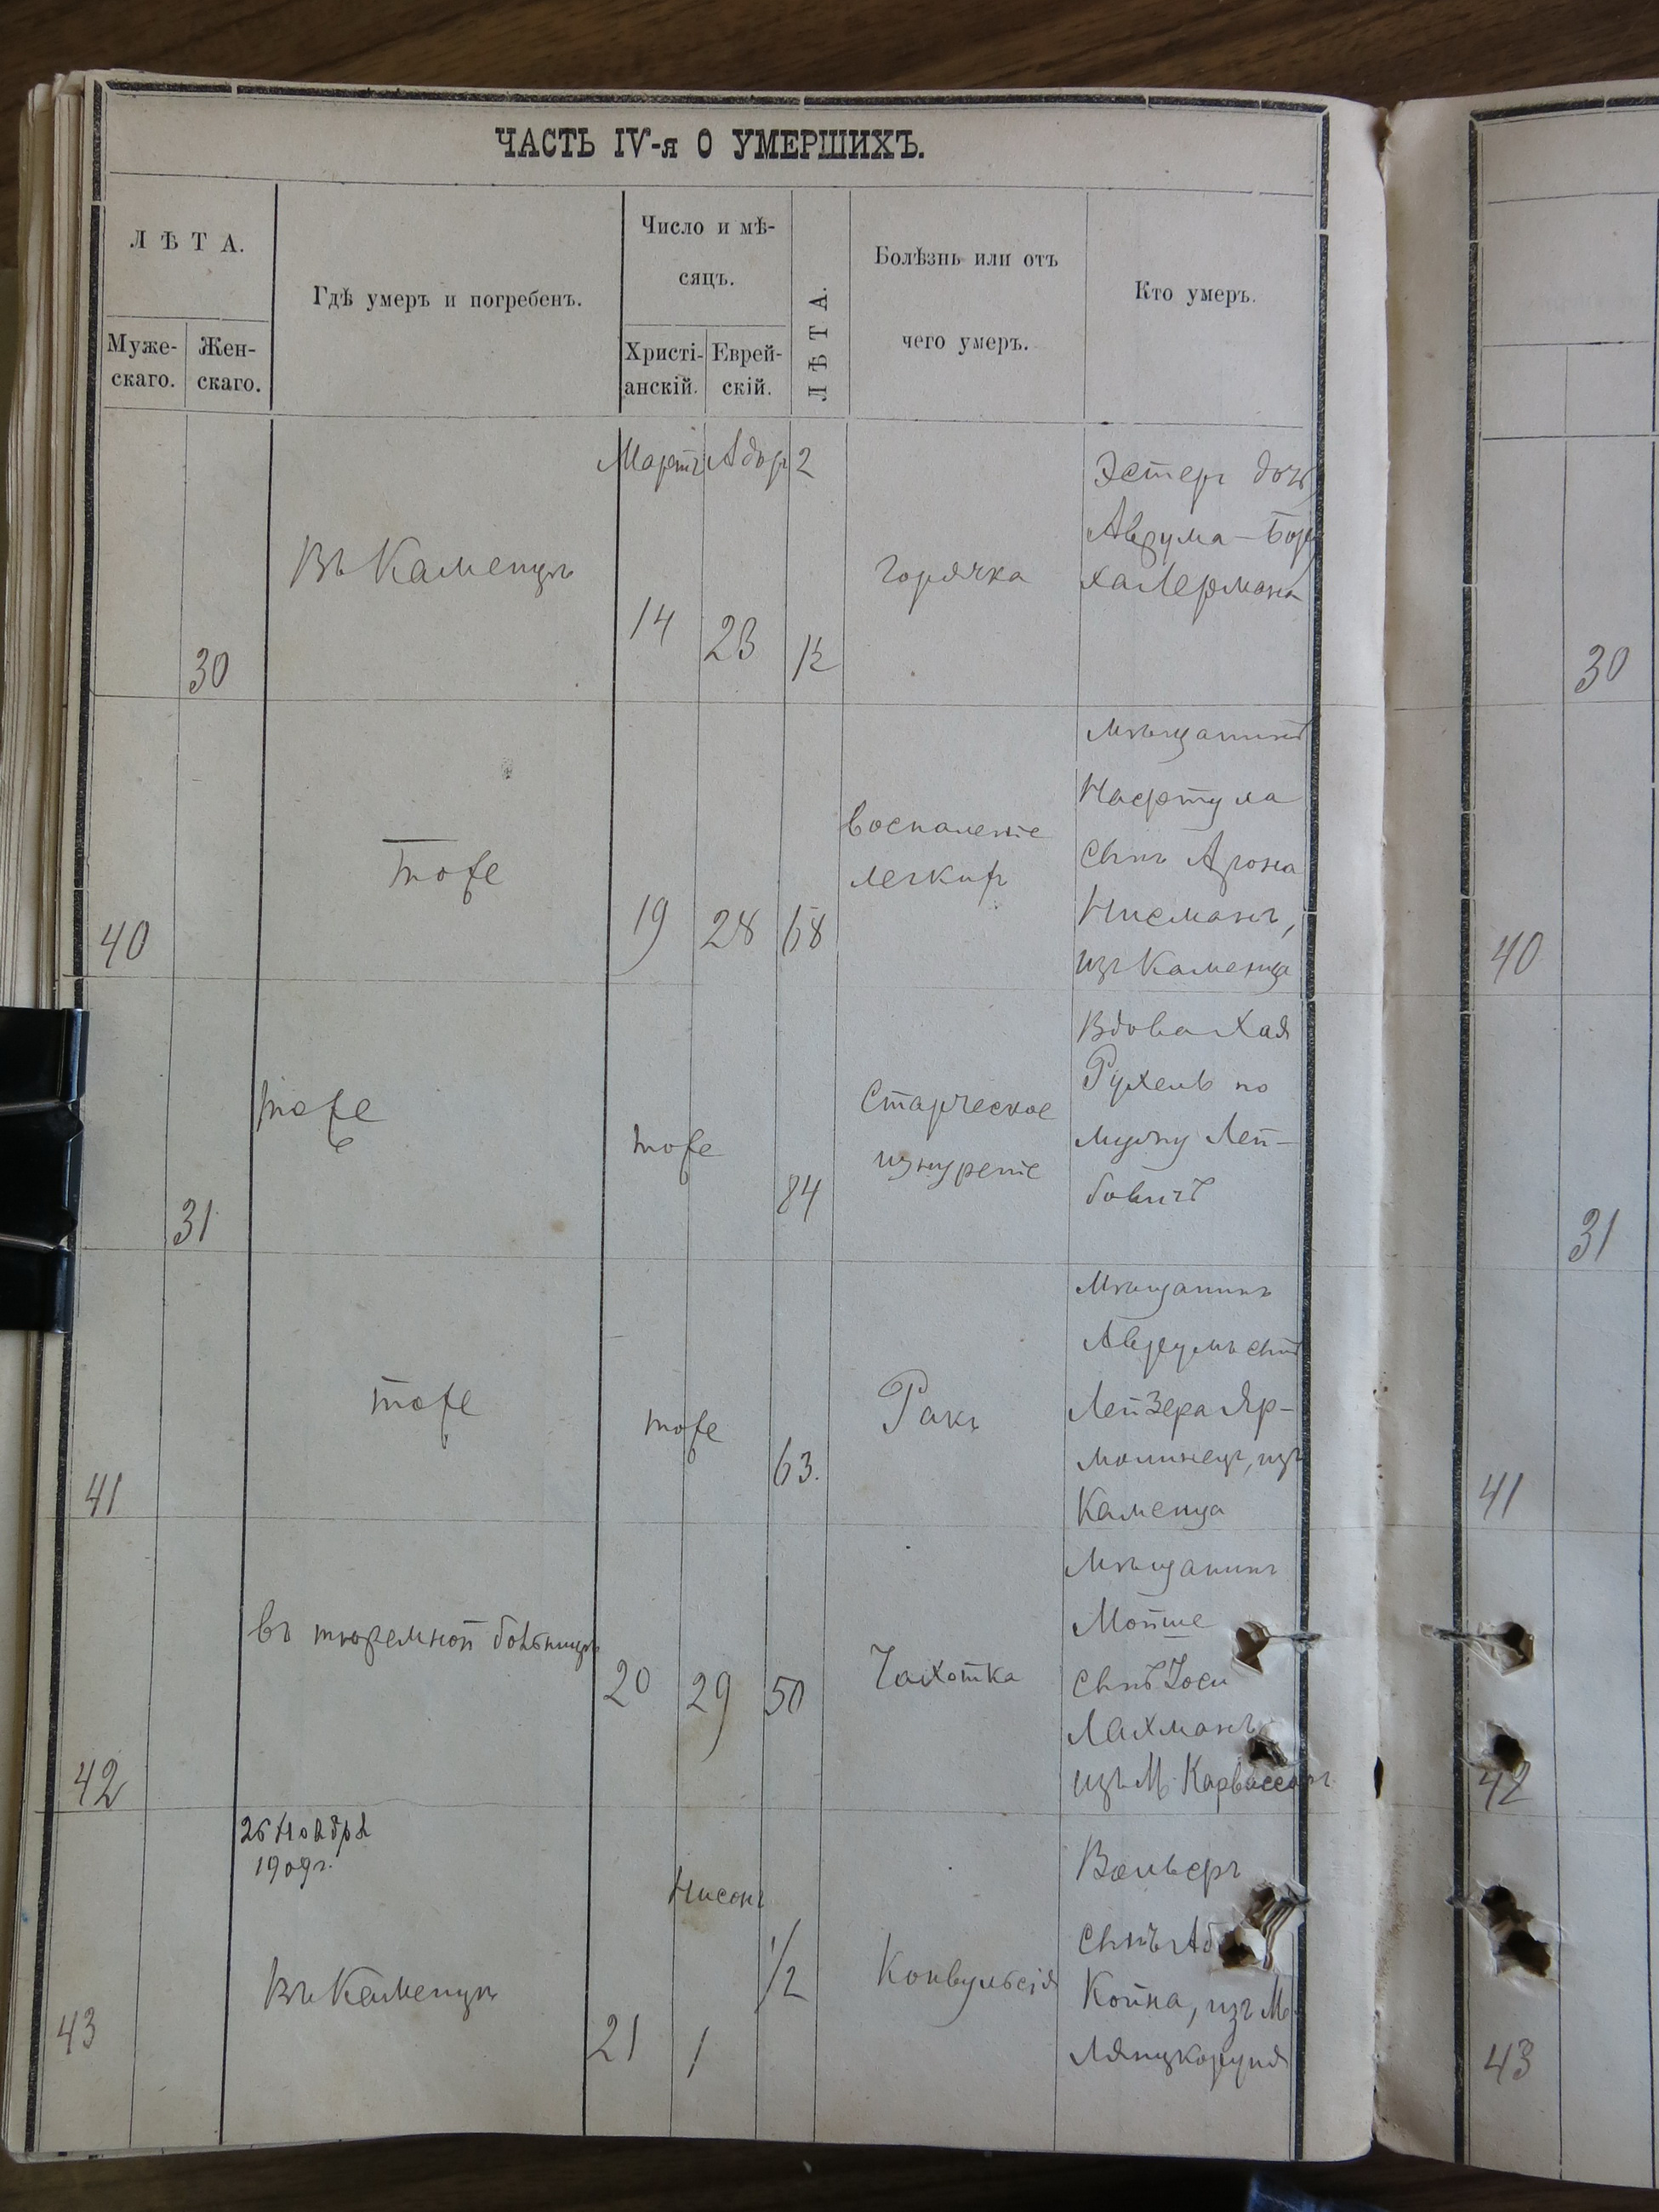 ЧАСТЬ IV-я О УМЕРШИХЪ.
ЛѢТА.
Муже-
скаго.
Жен-
скаго.
Гдѣ умеръ и погребенъ.
Число и мѣ-
сяцъ.
Христі-
анскій.
Еврей-
скій.
ЛѢТА.
Болѣзнь или отъ
чего умеръ.
Кто умеръ.
30
Въ Каменцѣ
Мартъ
14
Адаръ 2
23
горячка
Эстеръ дочь
Аврума-Бор
ха Лермана
30
40
тоже
19
28
68
воспаленіе
легкихъ
Мѣщанинъ
Нафтула
сынъ Арона
Нисманъ,
изъ Каменца
40
31
тоже
тоже
84
Старческое
изнуреніе
Вдова Хая
Рухель по
мужу Лей-
бовичъ
31
41
тоже
тоже
63.
Ракъ
Мѣщанинъ
Аврумъ сынъ
Лейзера Яр-
молинецъ, изъ
Каменца
41
42
въ тюремной больницѣ
20
29
50
Чахотка
Мѣщанинъ
Мойше
сынъ Іоси
Лахманъ
изъ М. Карвассаръ
42
26 Ноября
1909г.
43
Въ Каменцѣ
21
Нисонъ
1
1/2
Конвульсія
Вольверъ
сынъ
Койна, изъ М.
Ляпцкоруня
43